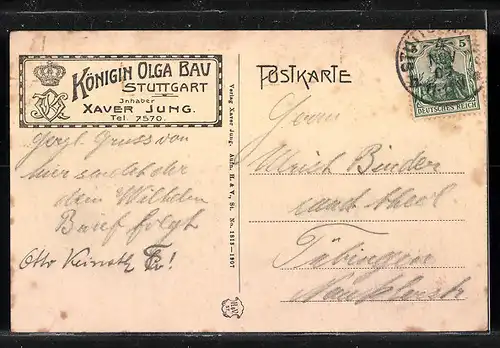 KÖNIGIN OLGA BAU
STUTTGART
Inhaber
XAVER JUNG.
Tel. 7570.
Hergl. Gruss von
hier sendet dir
dein Wilhelm
Brief folgt
Otto
Verlag Xaver Jung. Aufn. H. & V., St. No. 1815-1907
POSTKARTE
STUTTGART
5
DEUTSCHES REICH
Herrn
Ulrich Binder
cand. theol.
Tübingen